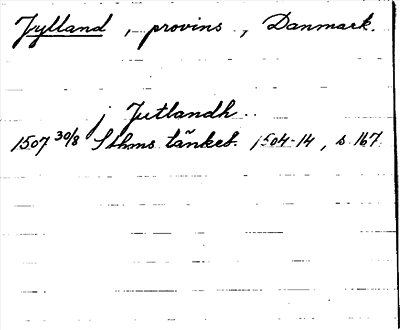 Jylland, provins, Danmark.
j Jutlandh..
1507 30/8 Sthms tänkeb. 1504-14, s. 167.